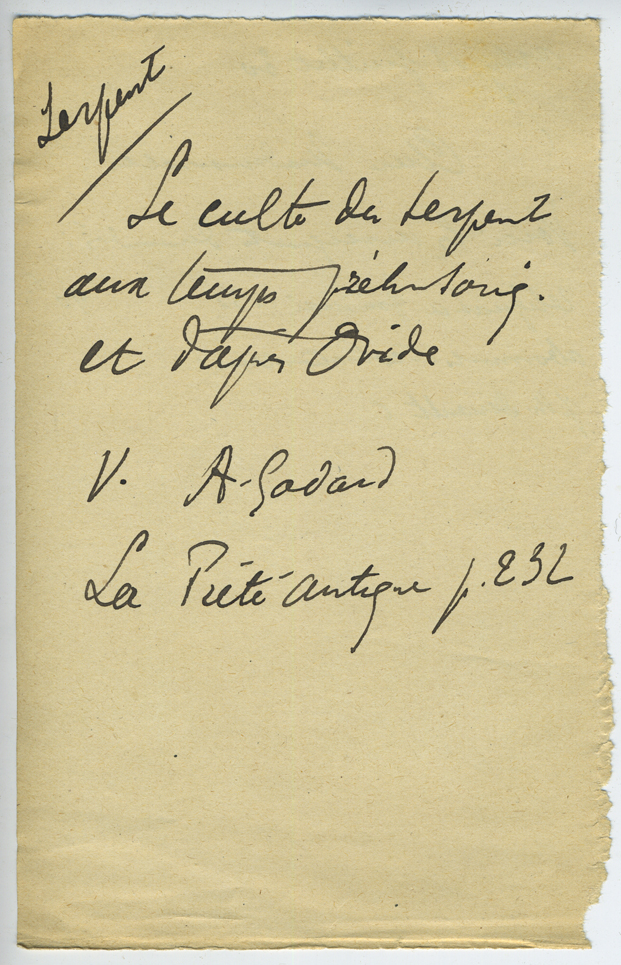 Serpent
Le culte du Serpent
aux temps préhistoriq.
et d'après Ovide
V. A. Godard
La Piété antique p. 232